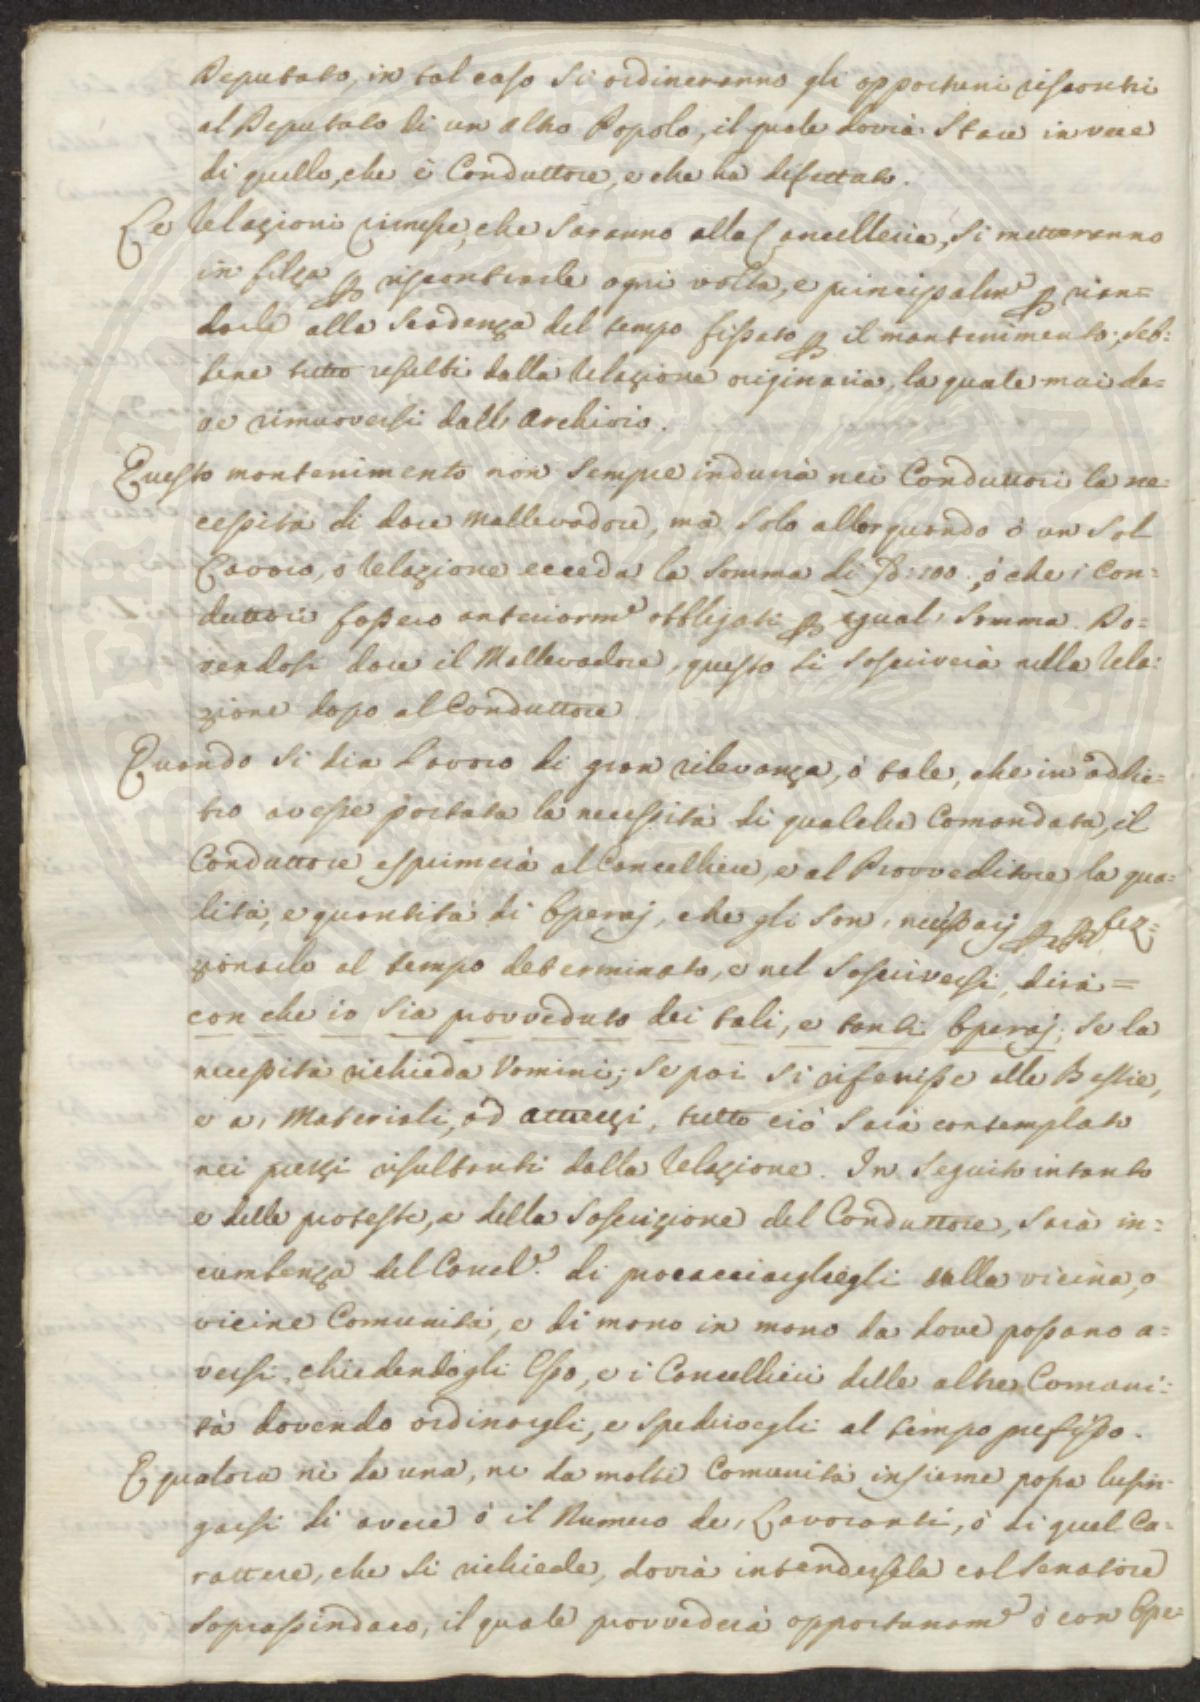 Deputato, in tal caso si ordineranno gli opportuni riscontri
al Deputato di un altro Popolo, il quale dovrà stare in vece
di quello, che è Conduttore, e che ha difettato.
Le Relazioni rimesse, che saranno alla Cancelleria, si metteranno
in filza ꝑ riscontrarle ogni volta, e principalm.e ꝑ rian=
darle alla scadenza del tempo fissato ꝑ il mantenimento; seb=
bene tutto resulti dalla Relazione originaria, la quale mai de=
ve rimuoversi dall' Archivio.
Questo mantenimento non sempre indurrà nei Conduttori la ne=
cessità di dare Mallevadore, ma solo allorquando ò un sol
Lavoro, ò Relazione ecceda la somma di 100., ò che i Con=
duttori fossero anteriorm.e obbligati ꝑ egual' somma. Do=
vendosi dare il Mallevadore, questo si soscriverà nella Rela=
zione dopo al Conduttore
Quando si dia Lavoro di gran rilevanza, ò tale, che in addie=
tro avesse portata la necessità di qualche Comandata, il
Conduttore esprimerà al Cancelliere, e al Provveditore la qua=
lità, e quantità di Operaj, che gli son' necessarj ꝑ
zionarlo al tempo determinato, e nel soscriversi, dirà =
con che io sia provveduto dei tali, e tanti Operaj; se la
necessità richieda Uomini; se poi si riferisse alle Bestie,
e a' Materiali, ad attrezzi, tutto ciò sarà contemplato
nei prezzi risultanti dalla Relazione. In seguito intanto
e delle proteste, e della soscrizione del Conduttore, sarà in=
cumbenza del Cancel.e di procacciarglegli dalla vicina, o
vicine Comunità, e di mano in mano da dove possano a=
versi, chiedendogli Esso, e i Cancellieri delle altre Comuni=
tà dovendo ordinargli, e spedirvegli al tempo prefisso.
E qualora nè da una, nè da molte Comunità insieme possa lusin=
garsi di avere ò il Numero de' Lavoranti, ò di quel Ca=
rattere, che si richiede, dovrà intendersela col Senatore
Soprassindaco, il quale provvederà opportunam.e ò con Ope=